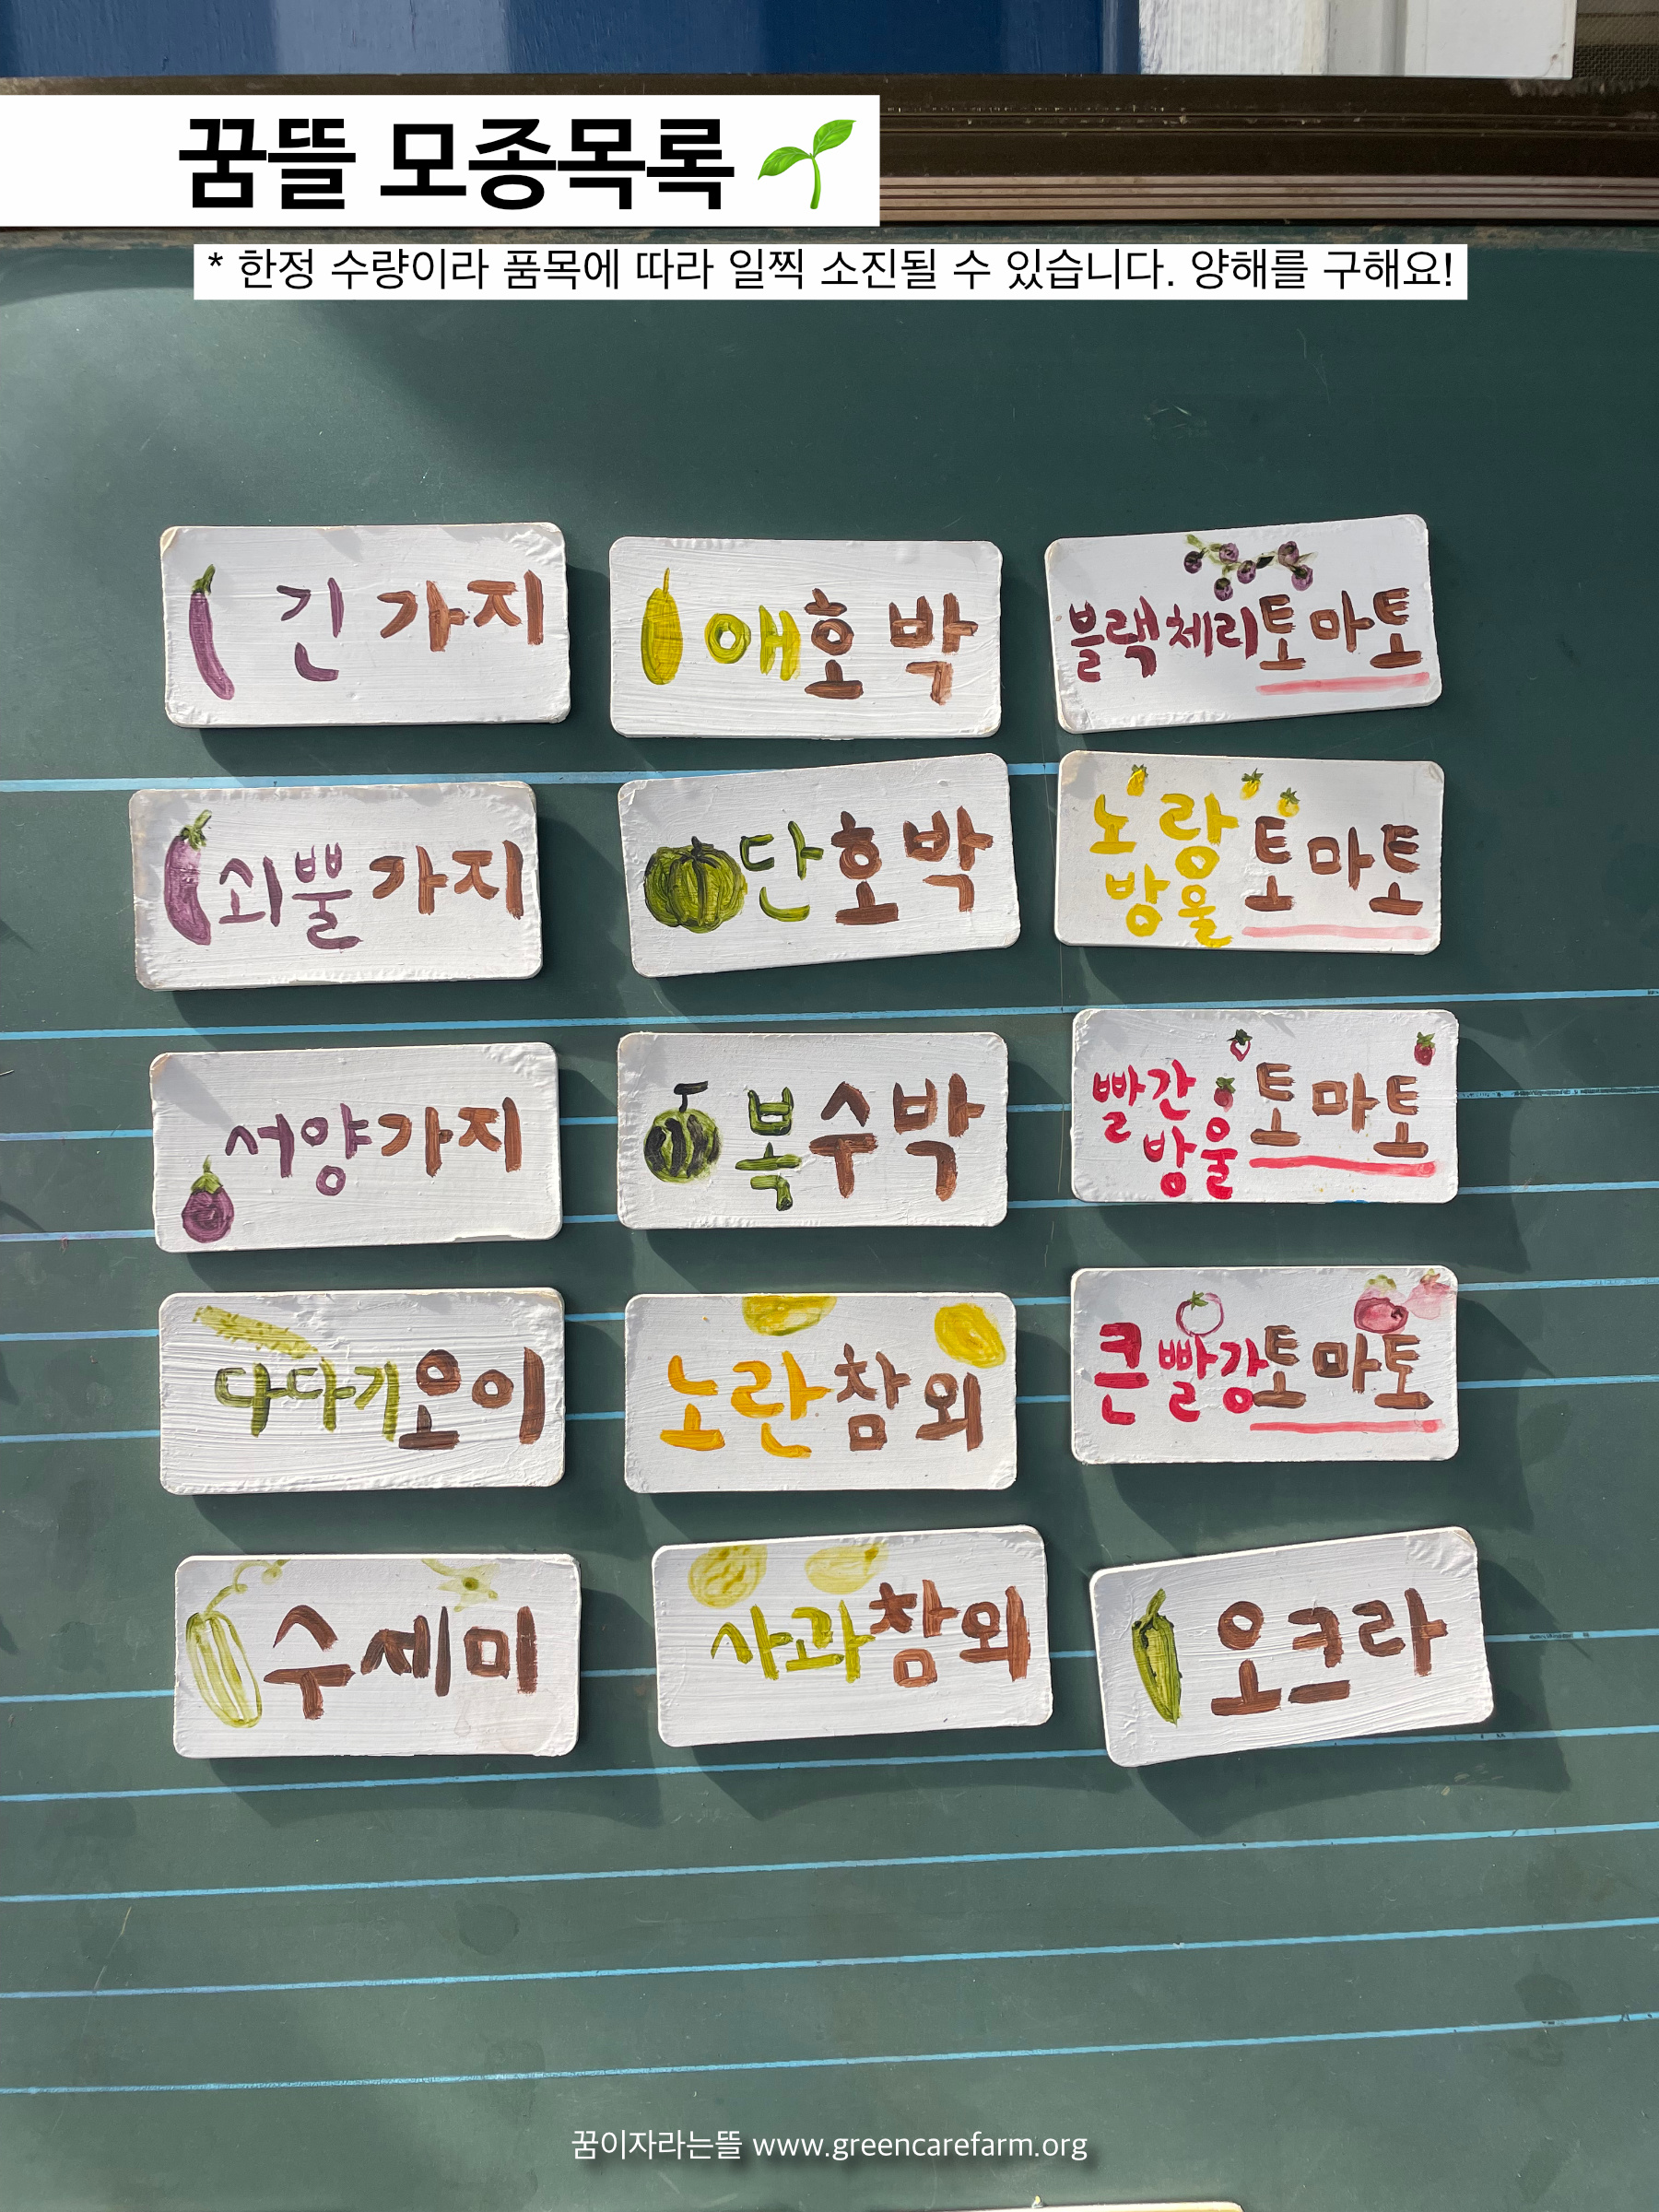 꿈뜰 모종목록
* 한정 수량이라 품목에 따라 일찍 소진될 수 있습니다. 양해를 구해요!
긴 가지
애호박
블랙체리토마토
쇠뿔가지
단호박
노랑
방울 토마토
서양가지
복수박
빨간
방울 토마토
다다기오이
노란참외
큰빨강토마토
수세미
사과참외
오크라
꿈이자라는뜰 www.greencarefarm.org